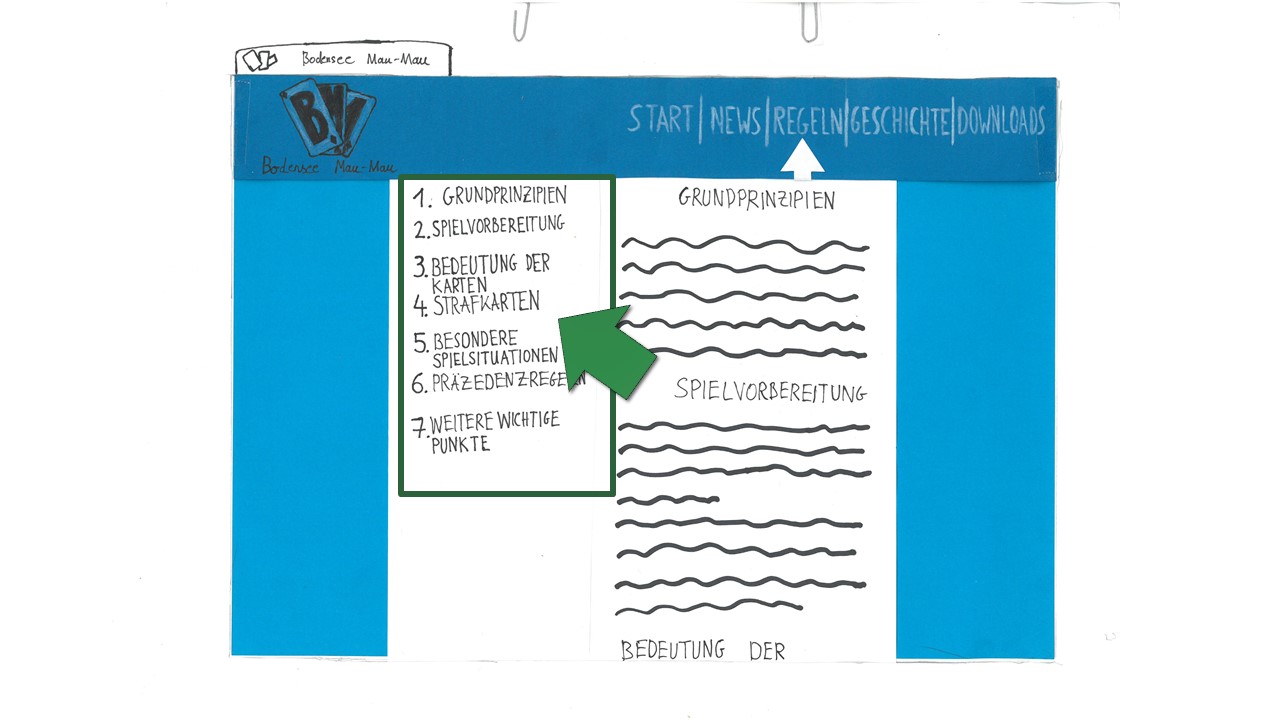 Bodensee Mau-Mau
B.M!
Bodensee Mau-Mau
START | NEWS | REGELN | GESCHICHTE | DOWNLOADS
1. GRUNDPRINZIPIEN
2. SPIELVORBEREITUNG
3. BEDEUTUNG DER
KARTEN
4. STRAFKARTEN
5. BESONDERE
SPIELSITUATIONEN
6. PRÄZEDENZREGELN
7. WEITERE WICHTIGE
PUNKTE
GRUNDPRINZIPIEN
SPIELVORBEREITUNG
BEDEUTUNG DER